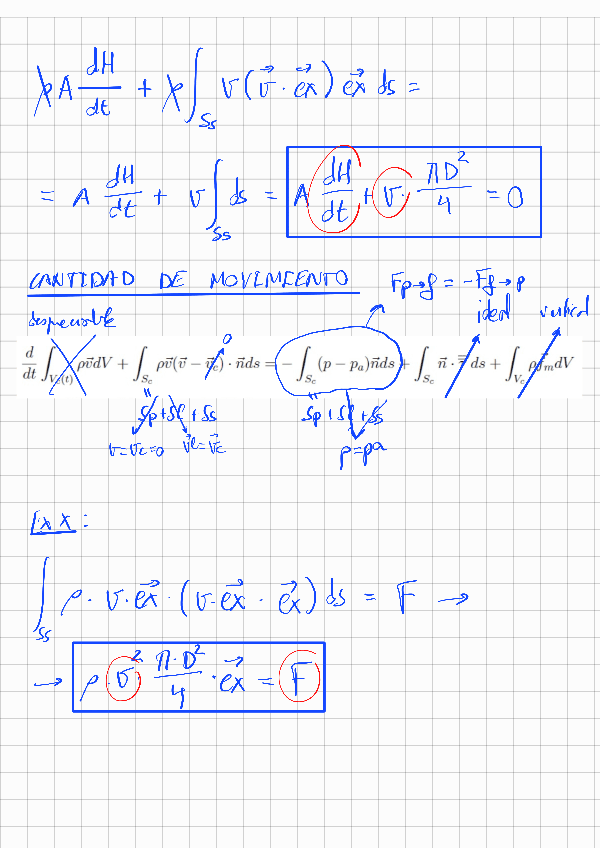 ρA dH/dt + ρ∫_Ss v(v⃗ · e⃗x) e⃗x ds =
= A dH/dt + v ∫_Ss ds = A dH/dt + v · πD²/4 = 0
CANTIDAD DE MOVIMIENTO
Fp→f = -Ff→p
despreciable
ideal
vertical
0
d/dt ∫_Vc(t) ρv⃗dV + ∫_Sc ρv⃗(v⃗ − v⃗c) · n⃗ds = − ∫_Sc (p − pa)n⃗ds + ∫_Sc n⃗ · τ̿' ds + ∫_Vc ρf⃗m dV
Sp + Sl + Ss
Sp + Sl + Ss
v = vc = 0
v⃗l = v⃗c
p = pa
Ex x :
∫_Ss ρ · v · e⃗x · (v · e⃗x · e⃗x) ds = F →
→ ρ v² π·D²/4 · e⃗x = F